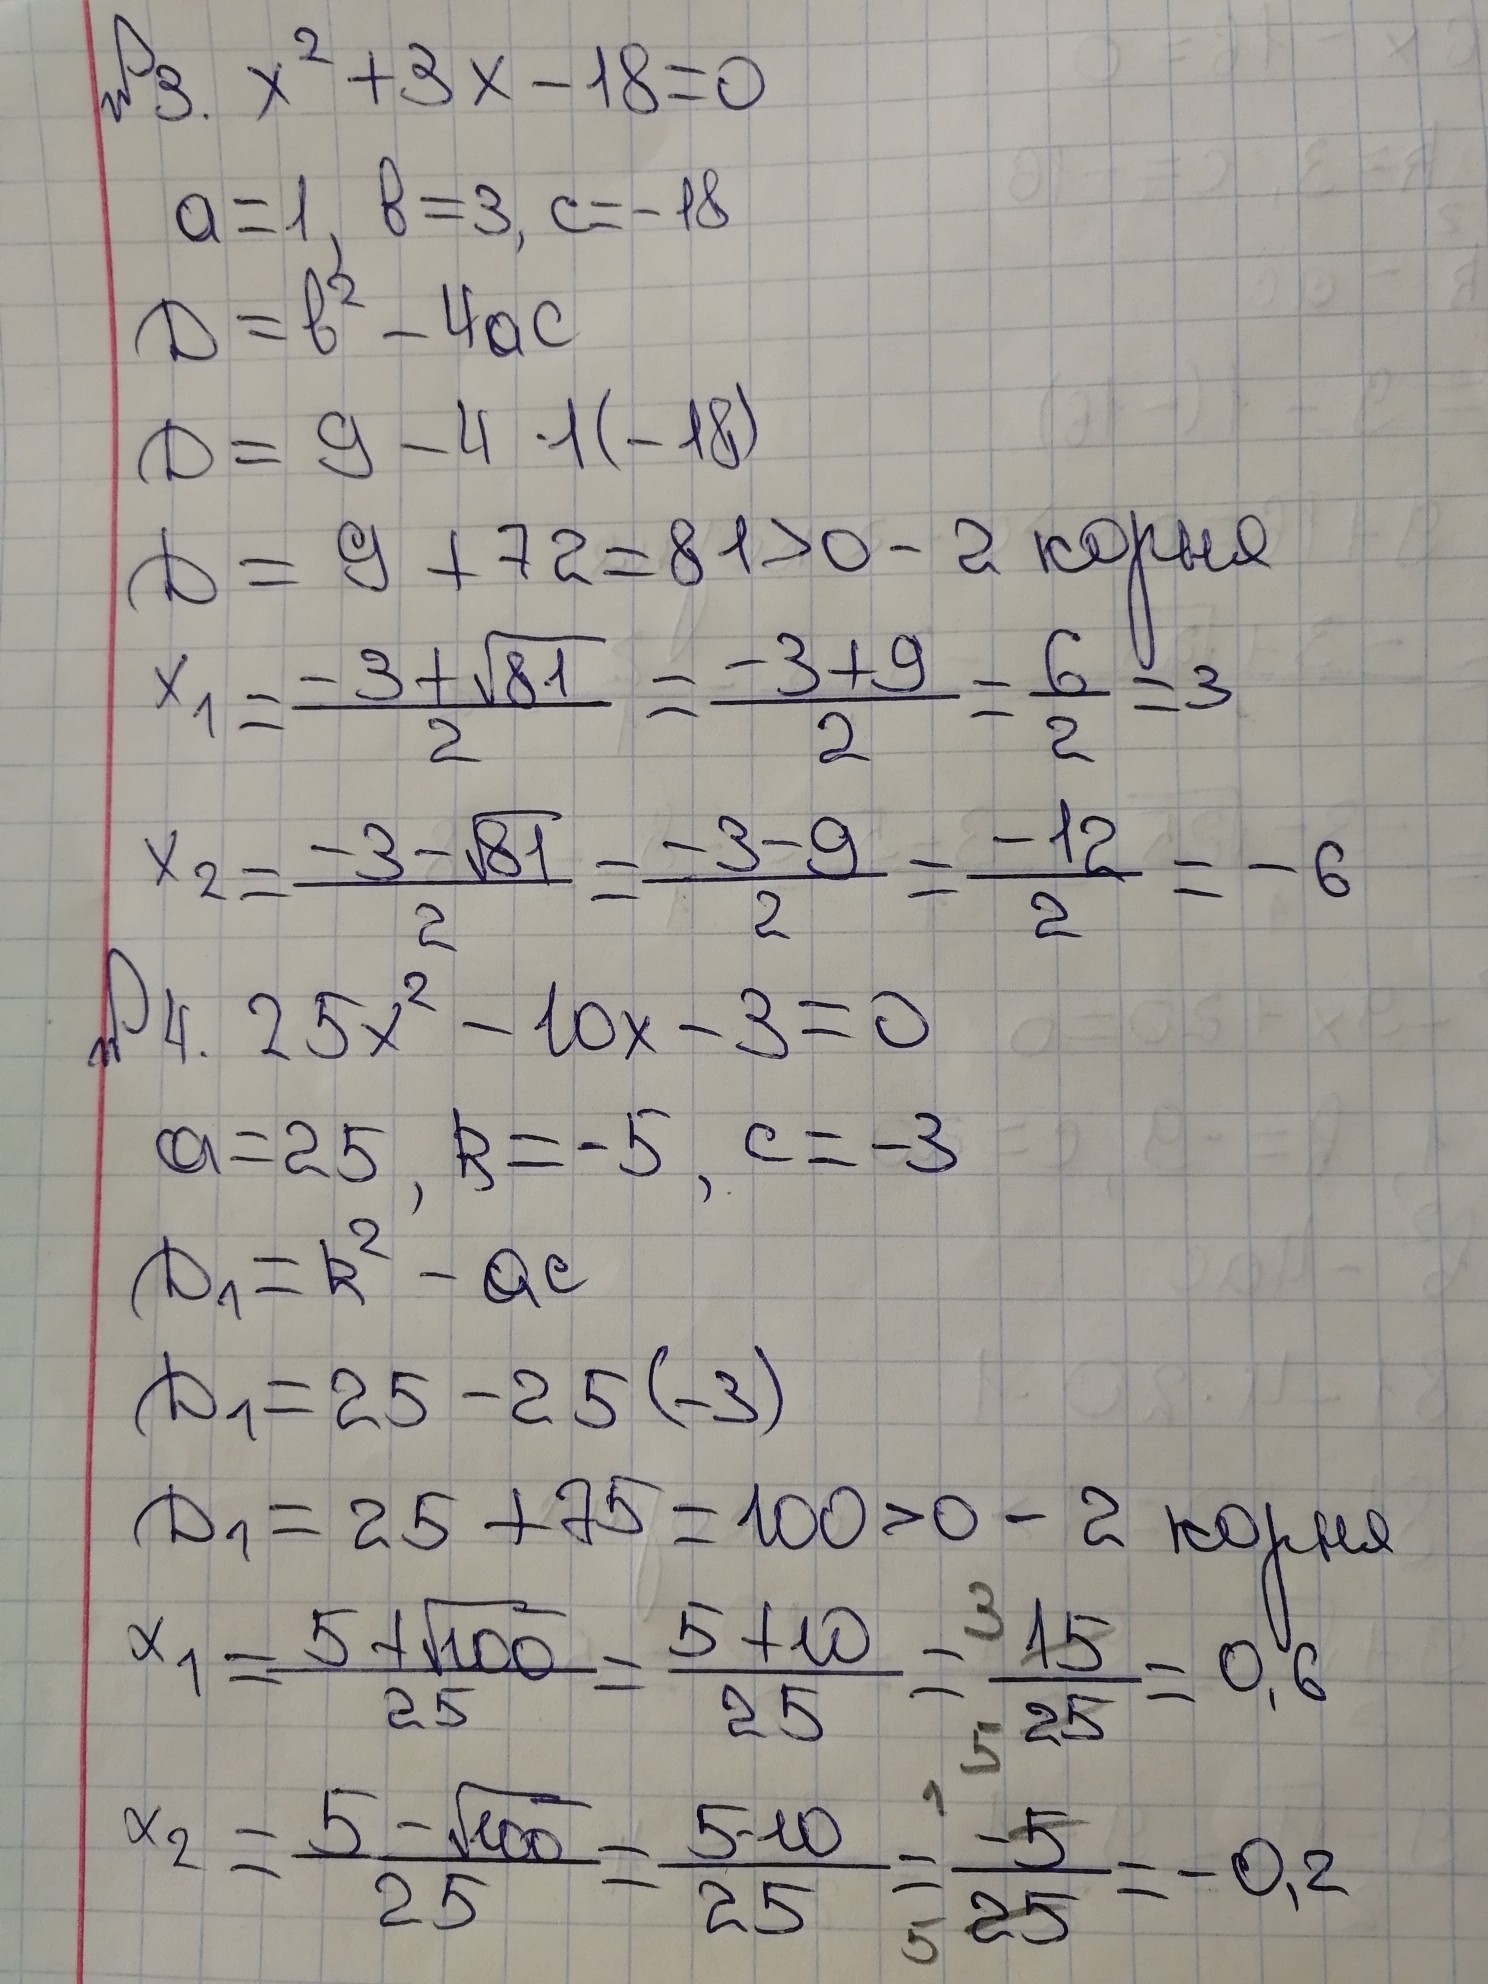 №3. x² + 3x - 18 = 0
a = 1, b = 3, c = -18
D = b² - 4ac
D = 9 - 4 · 1(-18)
D = 9 + 72 = 81 > 0 - 2 корня
x₁ = (-3 + √81)/2 = (-3 + 9)/2 = 6/2 = 3
x₂ = (-3 - √81)/2 = (-3 - 9)/2 = -12/2 = -6
№4. 25x² - 10x - 3 = 0
a = 25, k = -5, c = -3
D₁ = k² - ac
D₁ = 25 - 25(-3)
D₁ = 25 + 75 = 100 > 0 - 2 корня
x₁ = (5 + √100)/25 = (5 + 10)/25 = ³15/₅25 = 0,6
x₂ = (5 - √100)/25 = (5 - 10)/25 = ¹-5/₅25 = -0,2